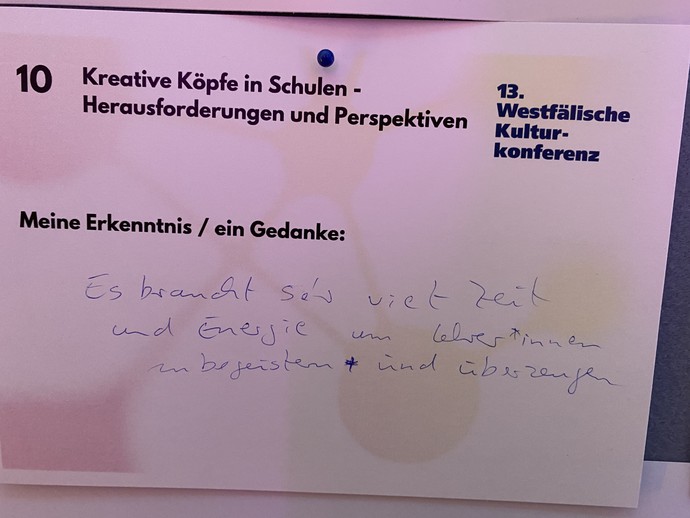 10
Kreative Köpfe in Schulen -
Herausforderungen und Perspektiven
13.
Westfälische
Kultur-
konferenz
Meine Erkenntnis / ein Gedanke:
Es braucht sehr viel Zeit
und Energie um Lehrer*innen
zu begeistern * und überzeugen